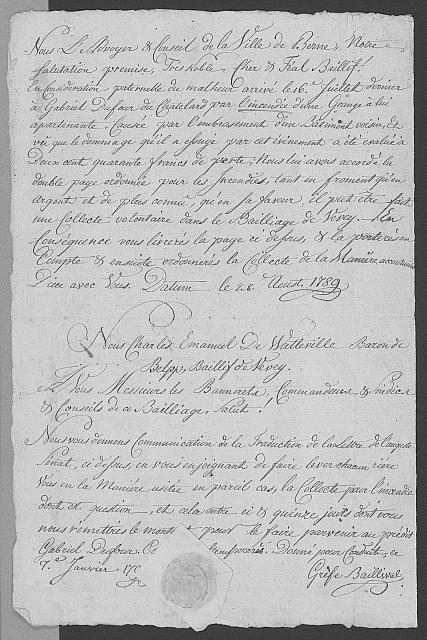 Nous L'Advoyer & Conseil de la Ville de Berne, Notre
Salutation premise, Tres Noble, Cher & Féal Baillif.
En Considération paternelle du malheur arrivé le 16.e Juillet dernier
à Gabriel Dufour du Chatelard par l'incendie d'une Grange à lui
appartenante, Causée par l'embrasement d'un Bâtiment voisin, Et
vû que le dommage qu'il a essuyé par cet événement a été évalué à
Deux cent quarante francs de perte; Nous lui avons accordé la
double paye ordonnée pour les Incendies, tant en froment qu'en
argent et de plus commis, qu'en sa faveur, il put être fait
une Collecte volontaire dans le Bailliage de Vevey. En
Conséquence vous livrerés la paye ci dessus, & la porterés en
Compte & ensuite ordonnerés la Collecte de la Maniére accoutumée
Dieu avec Vous. Datum le 28.e Aoust 1789
Nous Charles Emanuel De Watteville Baron de
Belpp, Baillif de Vevey.
A Vous Messieurs les Bannerets, Commandeurs, & Sindics
& Conseils de ce Bailliage, Salut!
Nous vous donnons Communication de la Traduction de la Lettre de l'auguste
Sénat, ci dessus, en vous enjoignant de faire lever chacun riére
Vous en la Maniére usitée en pareil cas, la Collecte pour l'incendie
dont est question, et cela entre ici & quinze jours dont vous
nous remettrés le montt pour le faire parvenir au prédit
Gabriel Dufour. Donné pour Conduite, ce
7.e Janvier 17
Greffe Baillival